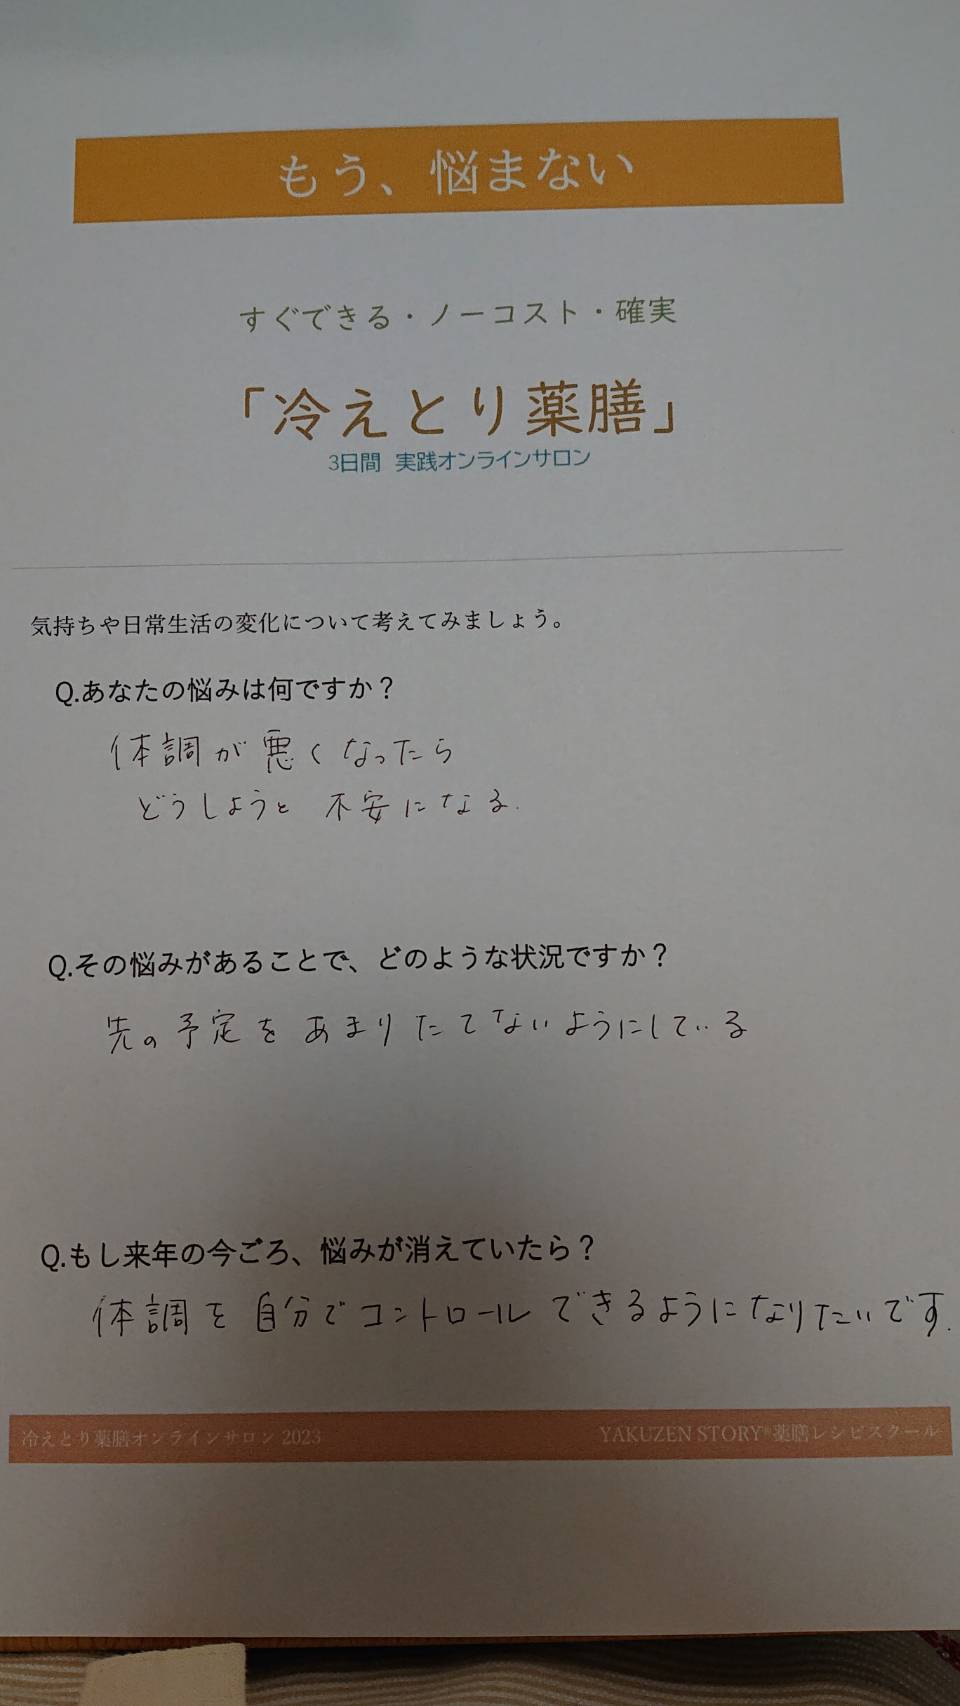 もう、悩まない
すぐできる・ノーコスト・確実
「冷えとり薬膳」
3日間 実践オンラインサロン
気持ちや日常生活の変化について考えてみましょう。
Q.あなたの悩みは何ですか？
体調が悪くなったら
どうしようと不安になる.
Q.その悩みがあることで、どのような状況ですか？
先の予定をあまりたてないようにしている
Q.もし来年の今ごろ、悩みが消えていたら？
体調を自分でコントロールできるようになりたいです.
冷えとり薬膳オンラインサロン 2023
YAKUZEN STORY®薬膳レシピスクール